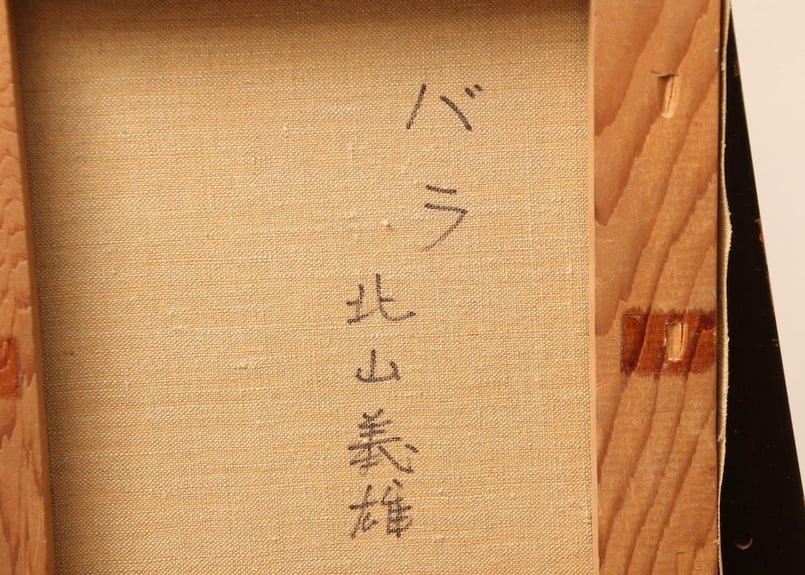 バラ
北山義雄